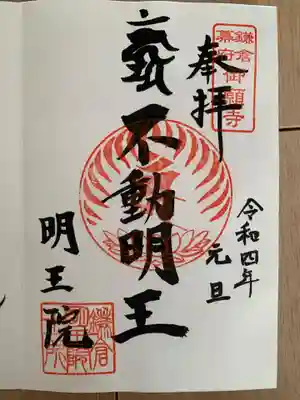 鎌倉
幕府御願寺
奉拝
不動明王
令和四年
元旦
明王院